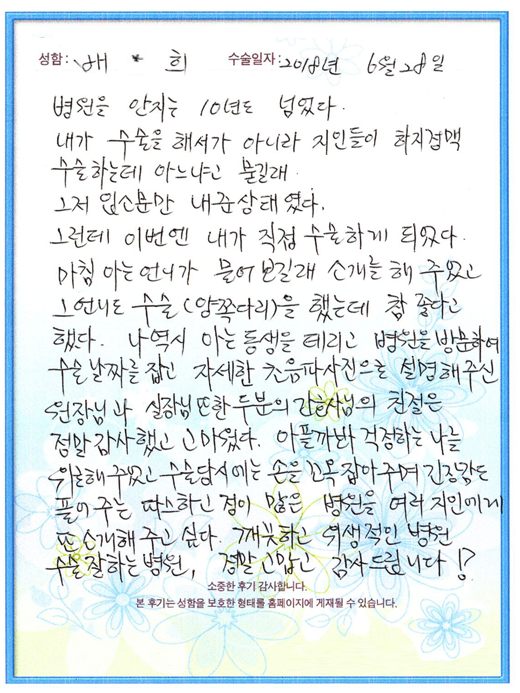 성함 : 배 * 희 수술일자 : 2018년 6월 28일
병원을 안지는 10년도 넘었다.
내가 수술을 해서가 아니라 지인들이 하지정맥
수술하는데 아느냐고 묻길래
그저 입소문만 내준상태였다.
그런데 이번엔 내가 직접 수술하게 되었다.
마침 아는언니가 물어보길래 소개를 해 주었고
그언니도 수술(양쪽다리)을 했는데 참 좋다고
했다. 나역시 아는동생을 데리고 병원을 방문하여
수술날짜를 잡고 자세한 초음파사진으로 설명해주신
원장님과 실장님또한 두분의 간호사님의 친절은
정말감사했고 고마웠다. 아플까봐 걱정하는 나를
위로해주었고 수술당시에는 손을 꼬옥잡아주며 긴장감도
풀어 주는 따스하고 정이 많은 병원을 여러 지인에게
또 소개해 주고 싶다. 깨끗하고 위생적인 병원
수술잘하는병원, 정말고맙고 감사드립니다 !?
소중한 후기 감사합니다.
본 후기는 성함을 보호한 형태를 홈페이지에 게재될 수 있습니다.